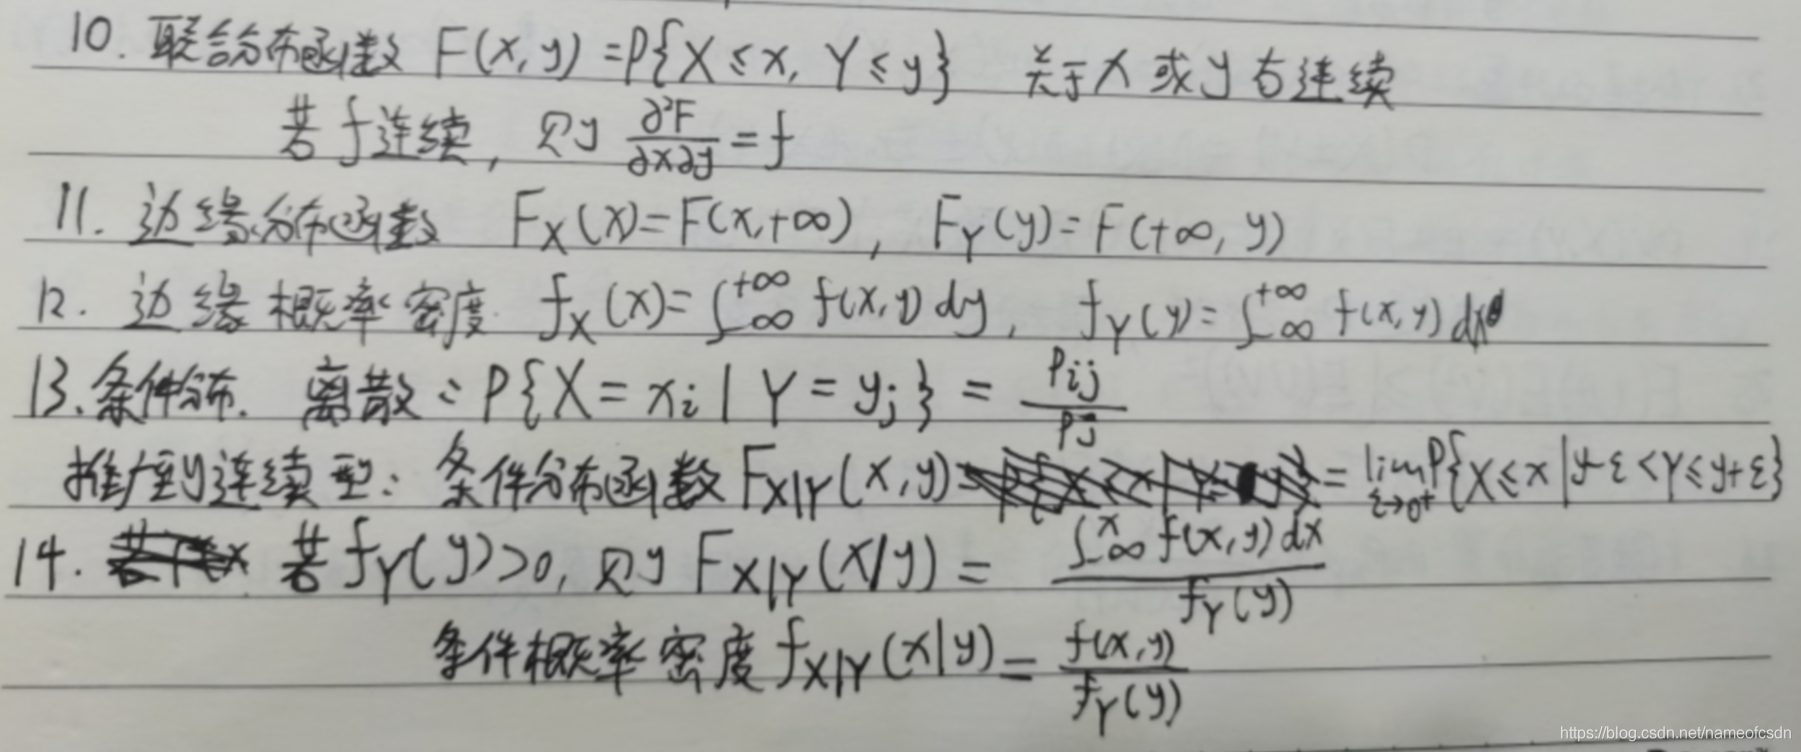 10. 联合分布函数 F(x,y)=P{X≤x, Y≤y} 关于x或y右连续
若f连续, 则 ∂²F/∂x∂y = f
11. 边缘分布函数 F_X(x)=F(x,+∞), F_Y(y)=F(+∞,y)
12. 边缘概率密度. f_X(x)=∫_{-∞}^{+∞} f(x,y)dy, f_Y(y)=∫_{-∞}^{+∞} f(x,y)dx
13. 条件分布. 离散: P{X=x_i | Y=y_j} = P_ij/P_j
推广到连续型: 条件分布函数 F_{X|Y}(x,y) = lim_{ε→0⁺} P{X≤x | y-ε<Y≤y+ε}
14. 若f_Y(y)>0, 则 F_{X|Y}(x|y) = ∫_{-∞}^{x} f(x,y)dx / f_Y(y)
条件概率密度 f_{X|Y}(x|y) = f(x,y)/f_Y(y)
https://blog.csdn.net/nameofcsdn